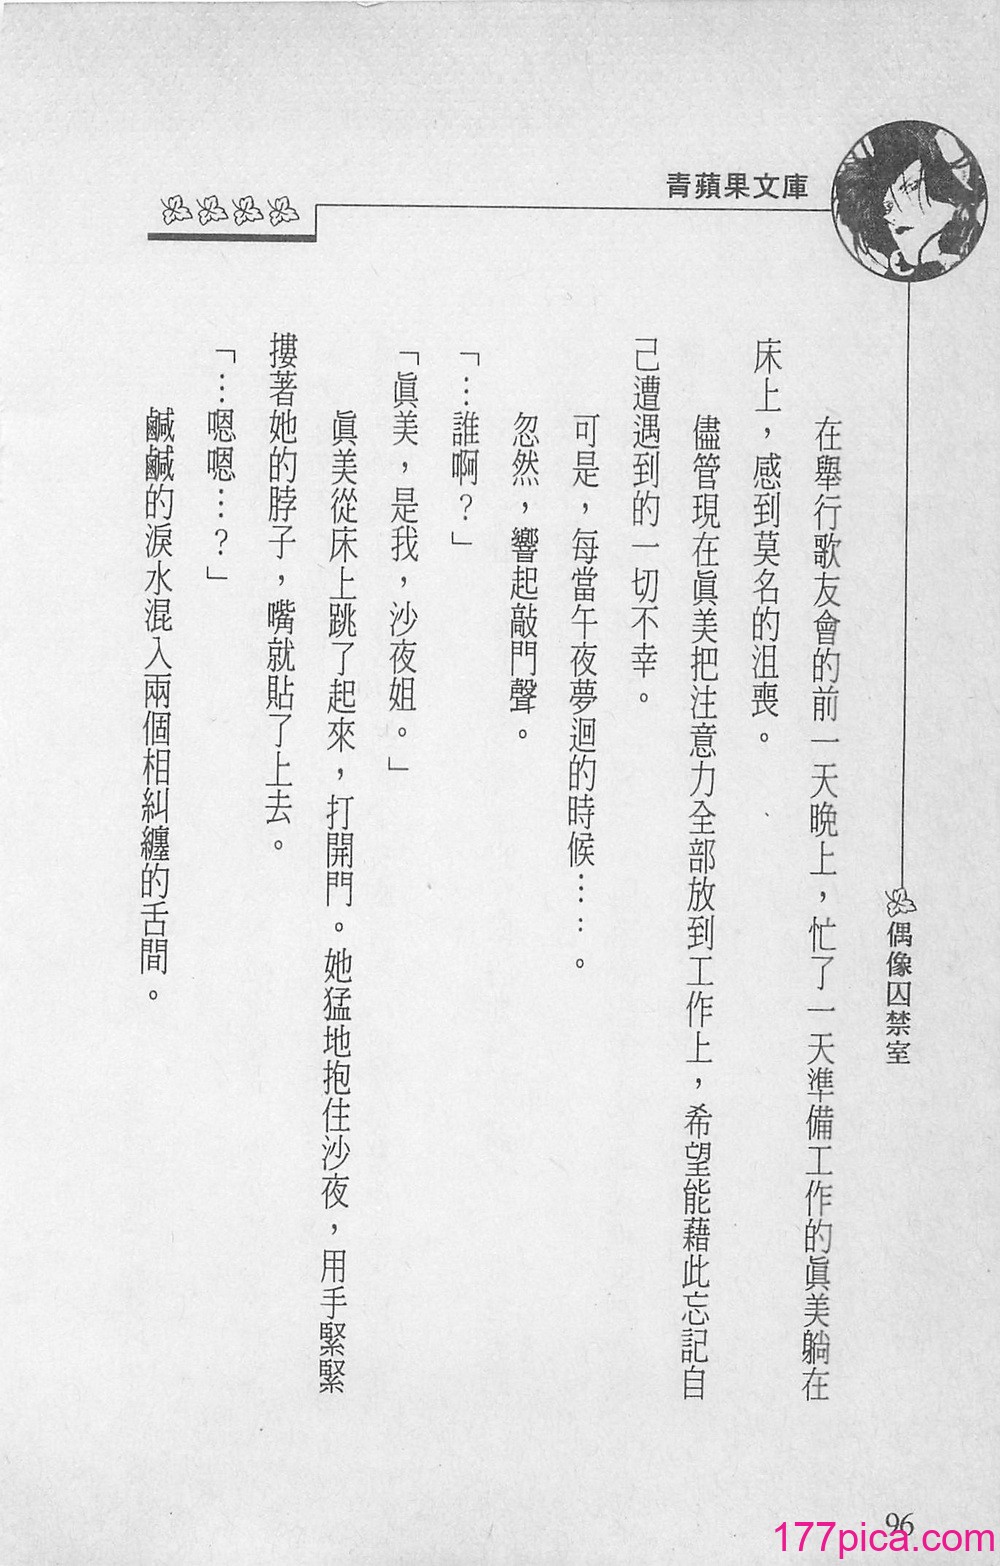 青蘋果文庫
偶像囚禁室
在舉行歌友會的前一天晚上，忙了一天準備工作的眞美躺在
床上，感到莫名的沮喪。
儘管現在眞美把注意力全部放到工作上，希望能藉此忘記自
己遭遇到的一切不幸。
可是，每當午夜夢迴的時候……。
忽然，響起敲門聲。
「…誰啊？」
「眞美，是我，沙夜姐。」
眞美從床上跳了起來，打開門。她猛地抱住沙夜，用手緊緊
摟著她的脖子，嘴就貼了上去。
「…嗯嗯…？」
鹹鹹的淚水混入兩個相糾纏的舌間。
96
177pica.com